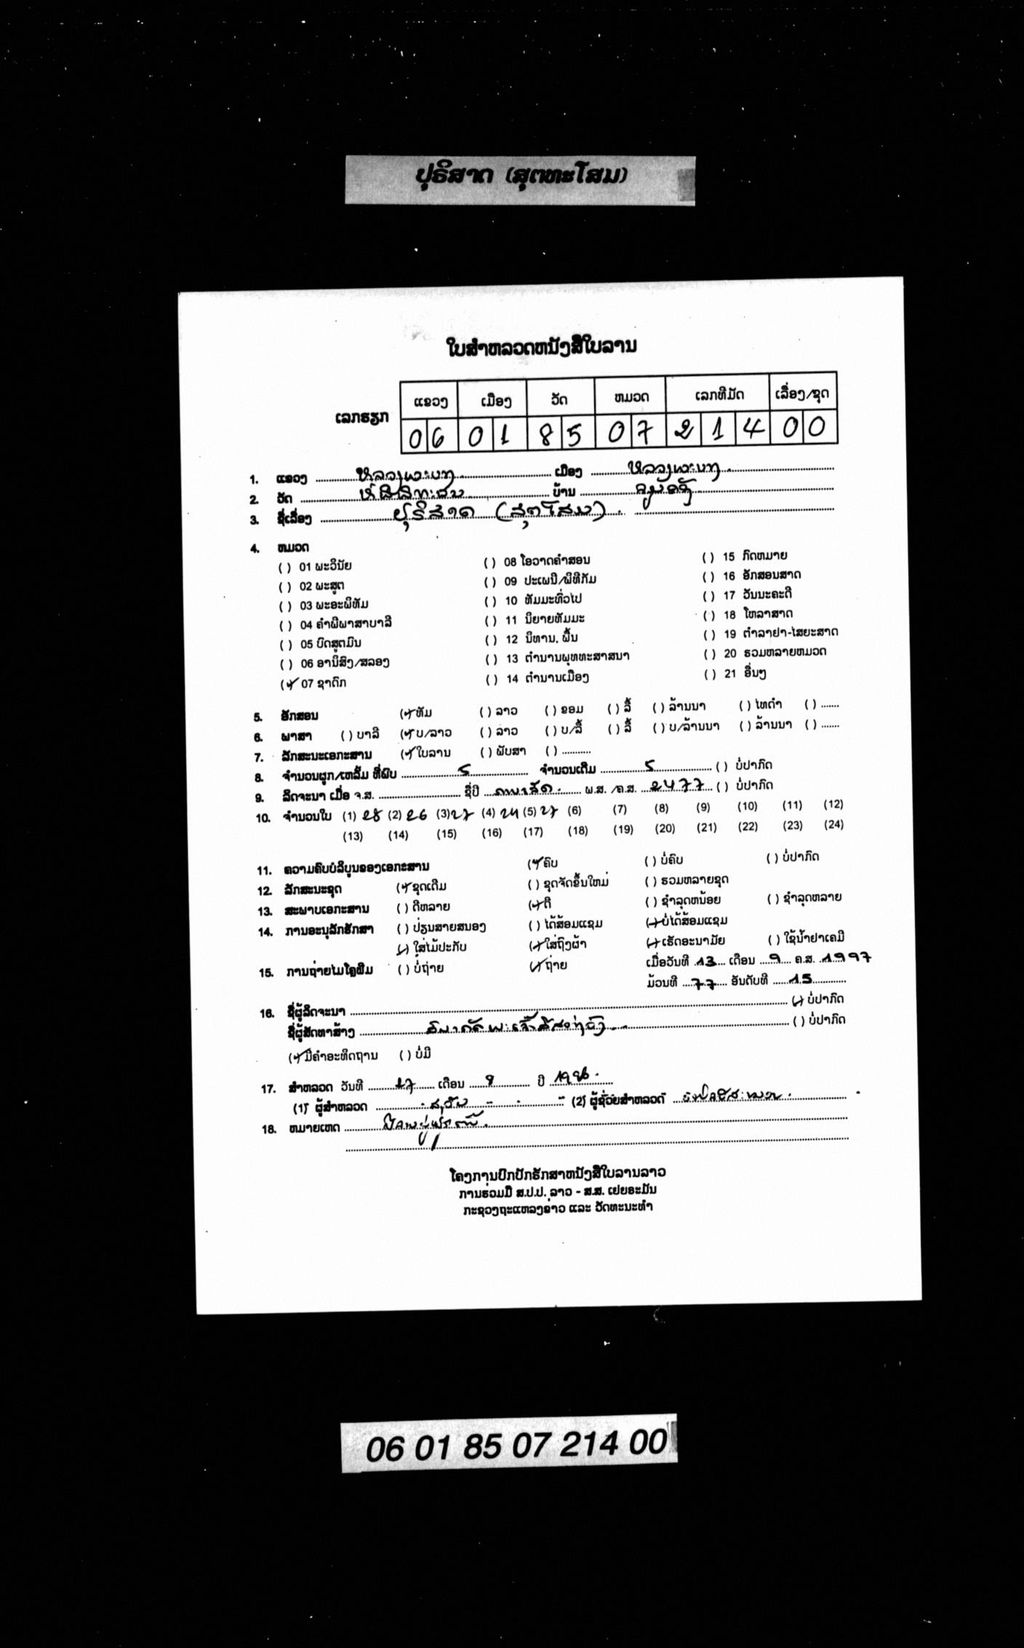 ປຸຣິສາດ (ສຸຕທະໂສມ)
ໃບສຳຫລວດຫນັງສືໃບລານ
ແຂວງ ເມືອງ ວັດ ຫມວດ ເລກທີມັດ ເລື່ອງ/ຊຸດ
ເລກຮຽກ 06 01 85 07 214 00
1. ແຂວງ ຫລວງພະບາງ ເມືອງ ຫລວງພະບາງ
2. ວັດ ບ້ານ
3. ຊື່ເລື່ອງ ປຸຣິສາດ (ສຸຕໂສມ)
4. ຫມວດ
( ) 01 ພະວິນັຍ ( ) 08 ໂອວາດຄຳສອນ ( ) 15 ກົດຫມາຍ
( ) 02 ພະສູດ ( ) 09 ປະເພນີ/ພິທີກັມ ( ) 16 ອັກສອນສາດ
( ) 03 ພະອະພິທັມ ( ) 10 ທັມມະທົ່ວໄປ ( ) 17 ວັນນະຄະດີ
( ) 04 ຄຳພີພາສາບາລີ ( ) 11 ນິຍາຍທັມມະ ( ) 18 ໂຫລາສາດ
( ) 05 ບົດສູດມົນ ( ) 12 ນິທານ, ພື້ນ ( ) 19 ຕຳລາຢາ-ໄສຍະສາດ
( ) 06 ອານິສົງ/ສລອງ ( ) 13 ຕຳນານພຸທທະສາສນາ ( ) 20 ຮວມຫລາຍຫມວດ
(✓) 07 ຊາດົກ ( ) 14 ຕຳນານເມືອງ ( ) 21 ອື່ນໆ
5. ອັກສອນ (✓) ທັມ ( ) ລາວ ( ) ຂອມ ( ) ລື້ ( ) ລ້ານນາ ( ) ໄທດຳ ( ) ......
6. ພາສາ ( ) ບາລີ (✓) ບ/ລາວ ( ) ລາວ ( ) ບ/ລື້ ( ) ລື້ ( ) ບ/ລ້ານນາ ( ) ລ້ານນາ ( ) ......
7. ລັກສະນະເອກະສານ (✓) ໃບລານ ( ) ພັບສາ ( ) ..........
8. ຈຳນວນຜູກ/ເຫລັ້ມ ທີ່ພົບ 5 ຈຳນວນເດີມ 5 ( ) ບໍ່ປາກົດ
9. ລິດຈະນາ ເມື່ອ ຈ.ສ. ຊື່ປີ ພ.ສ. /ຄ.ສ. 2477 ( ) ບໍ່ປາກົດ
10. ຈຳນວນໃບ (1) 28 (2) 26 (3) 27 (4) 24 (5) 27 (6) (7) (8) (9) (10) (11) (12)
(13) (14) (15) (16) (17) (18) (19) (20) (21) (22) (23) (24)
11. ຄວາມຄົບບໍລິບູນຂອງເອກະສານ (✓) ຄົບ ( ) ບໍ່ຄົບ ( ) ບໍ່ປາກົດ
12. ລັກສະນະຊຸດ (✓) ຊຸດເດີມ ( ) ຊຸດຈັດຂຶ້ນໃຫມ່ ( ) ຮວມຫລາຍຊຸດ
13. ສະພາບເອກະສານ ( ) ດີຫລາຍ (✓) ດີ ( ) ຊຳລຸດຫນ້ອຍ ( ) ຊຳລຸດຫລາຍ
14. ການອະນຸລັກຮັກສາ ( ) ປ່ຽນສາຍສນອງ ( ) ໄດ້ສ້ອມແຊມ (✓) ບໍ່ໄດ້ສ້ອມແຊມ
(✓) ໃສ່ໄມ້ປະກັບ (✓) ໃສ່ຖົງຜ້າ (✓) ເຮັດອະນາມັຍ ( ) ໃຊ້ນ້ຳຢາເຄມີ
15. ການຖ່າຍໄມໂຄຼຟິມ ( ) ບໍ່ຖ່າຍ (✓) ຖ່າຍ ເມື່ອວັນທີ 13 ເດືອນ 9 ຄ.ສ. 1997
ມ້ວນທີ 77 ອັນດັບທີ 15
16. ຊື່ຜູ້ລິດຈະນາ (✓) ບໍ່ປາກົດ
ຊື່ຜູ້ສັດທາສ້າງ ( ) ບໍ່ປາກົດ
(✓) ມີຄຳອະທິດຖານ ( ) ບໍ່ມີ
17. ສຳຫລວດ ວັນທີ 27 ເດືອນ 8 ປີ 1996
(1) ຜູ້ສຳຫລວດ (2) ຜູ້ຊ່ວຍສຳຫລວດ
18. ຫມາຍເຫດ
ໂຄງການປົກປັກຮັກສາຫນັງສືໃບລານລາວ
ການຮ່ວມມື ສ.ປ.ປ. ລາວ - ສ.ສ. ເຢຍຣະມັນ
ກະຊວງຖະແຫລງຂ່າວ ແລະ ວັດທະນະທຳ
06 01 85 07 214 00